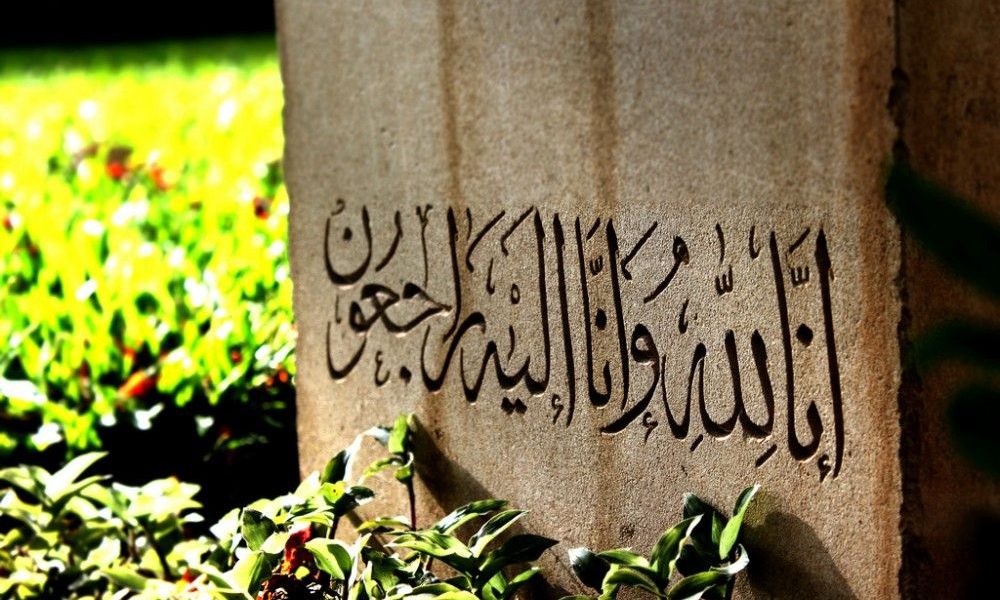 إِنَّا لِلّهِ وَإِنَّا إِلَيْهِ رَاجِعُونَ